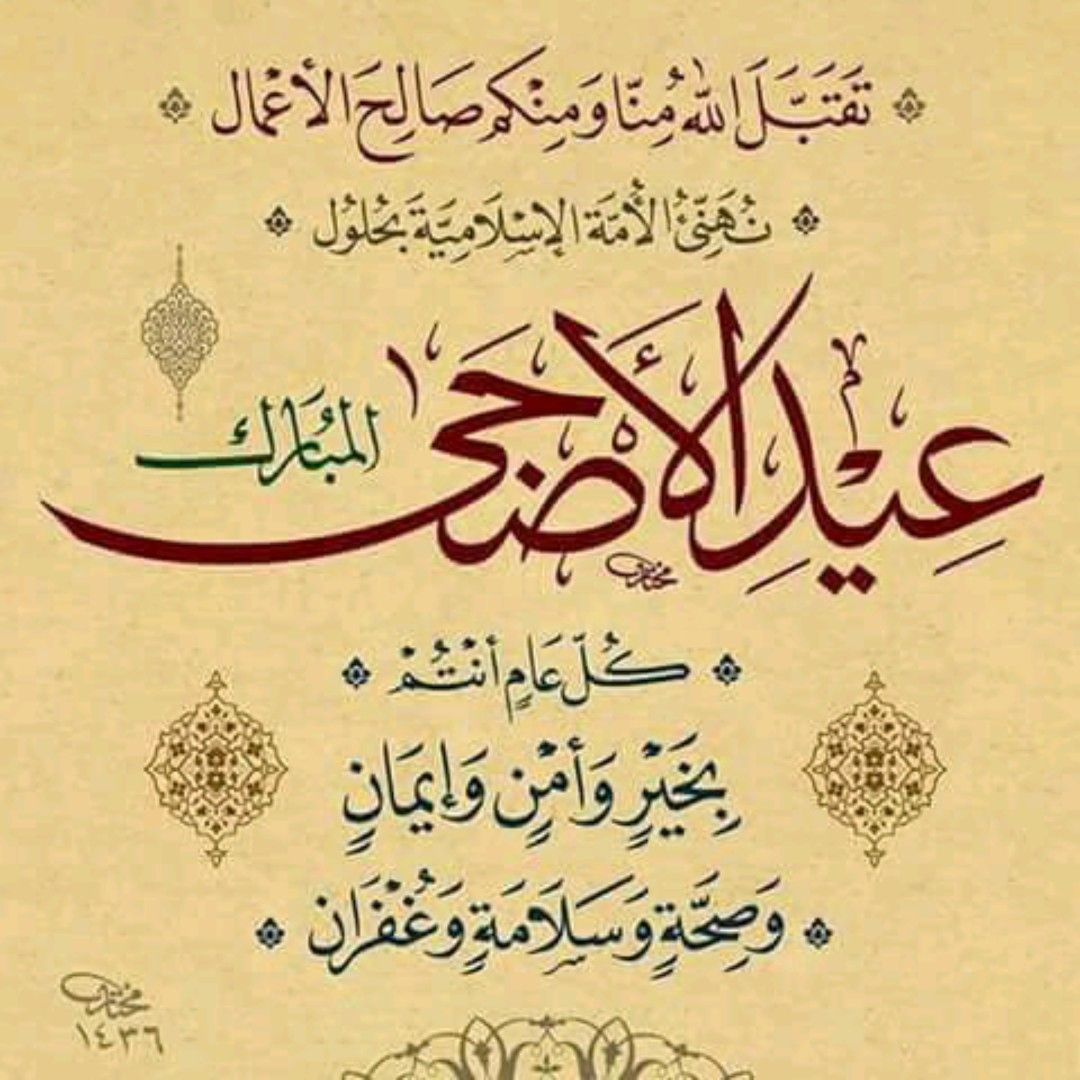 تَقَبَّلَ اللهُ مِنّا وَمِنْكم صَالِحَ الأعْمال
نُهَنِّئُ الأُمّةَ الإسْلَاميَّةَ بحُلُول
عِيدِ الأَضْحَى المُبَارَك
كُلّ عَامٍ أنْتُمْ
بِخَيْرٍ وَأمْنٍ وَإيمَانٍ
وَصِحَّةٍ وَسَلَامَةٍ وَغُفْرَان
١٤٣٦